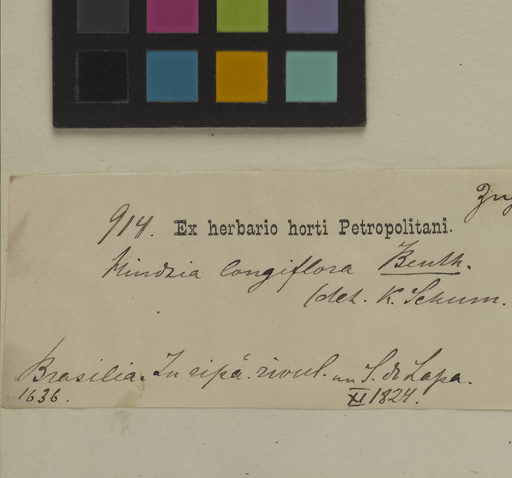 914. Ex herbario horti Petropolitani.
Hindsia longiflora Benth.
(det. K. Schum.
Brasilia. In ripâ rivul. S. da Lapa.
1636. XI 1824.